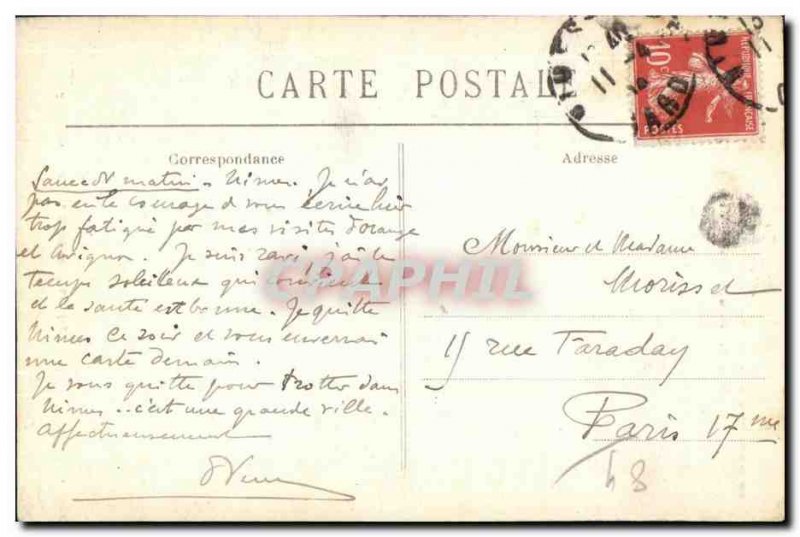 CARTE POSTALE
Correspondance
Adresse
10c
REPUBLIQUE FRANÇAISE
POSTES
Samedi matin. Nimes. Je n'ai
pas eu le courage d vous écrire hier
trop fatigué par mes visites d'Orange
et Avignon. Je suis ravi, j'ai le
temps soleilleux qui
et la santé est bonne. Je quitte
Nimes ce soir et vous enverrai
une carte demain.
Je vous quitte pour trotter dans
Nimes.. c'est une grande ville.
Affectueusement
Monsieur et Madame
Morisset
15 rue Faraday
Paris 17me
48
CPAPHIL